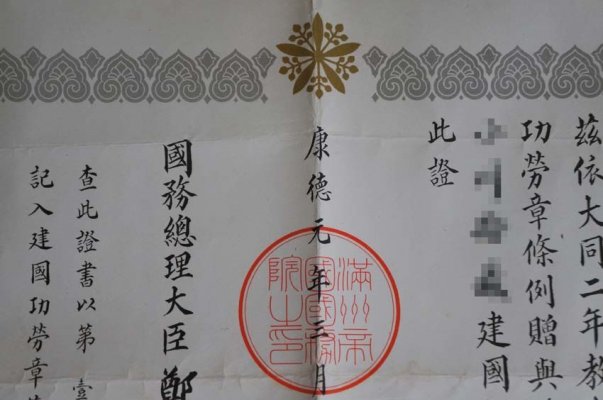 茲依大同二年教
功勞章條例贈與
建國
此證
康德元年三月
滿洲帝
國國務
院之印
國務總理大臣鄭
查此證書以第壹
記入建國功勞章